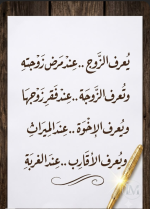 يُعرف الزَّوج .. عِند مَرض زَوْجَتِهِ
وتُعرف الزَّوجَة .. عِند فَقر زَوْجِهَا
ويُعرف الإِخْوَة .. عِند المِيرَاث
ويُعرف الأَقَارِب .. عِند الغُربَةِ